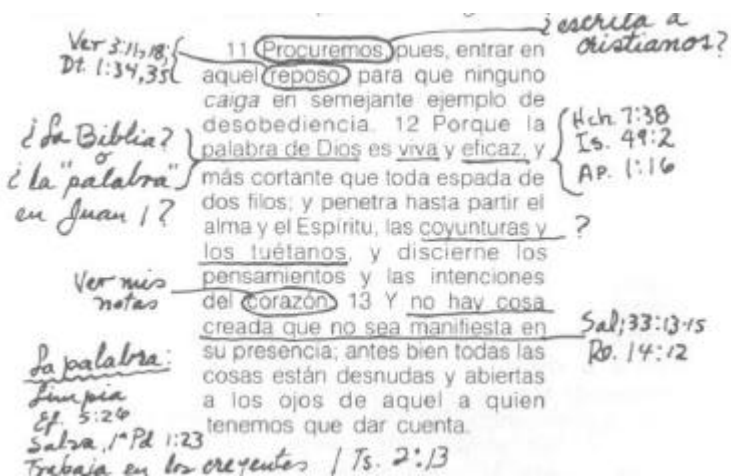 ¿escrita a
cristianos?
Ver 3:11,18;
Dt. 1:34,35
11 Procuremos, pues, entrar en
aquel reposo, para que ninguno
caiga en semejante ejemplo de
desobediencia. 12 Porque la
palabra de Dios es viva y eficaz, y
más cortante que toda espada de
dos filos; y penetra hasta partir el
alma y el Espíritu, las coyunturas y
los tuétanos, y discierne los
pensamientos y las intenciones
del corazón. 13 Y no hay cosa
creada que no sea manifiesta en
su presencia; antes bien todas las
cosas están desnudas y abiertas
a los ojos de aquel a quien
tenemos que dar cuenta.
¿La Biblia?
o
¿la "palabra"
en Juan 1?
Hch. 7:38
Is. 49:2
Ap. 1:16
?
Ver mis
notas
Sal; 33:13-15
Ro. 14:12
La palabra:
Limpia
Ef. 5:26
Salva, 1ª Pd 1:23
Trabaja en los creyentes 1 Ts. 2:13